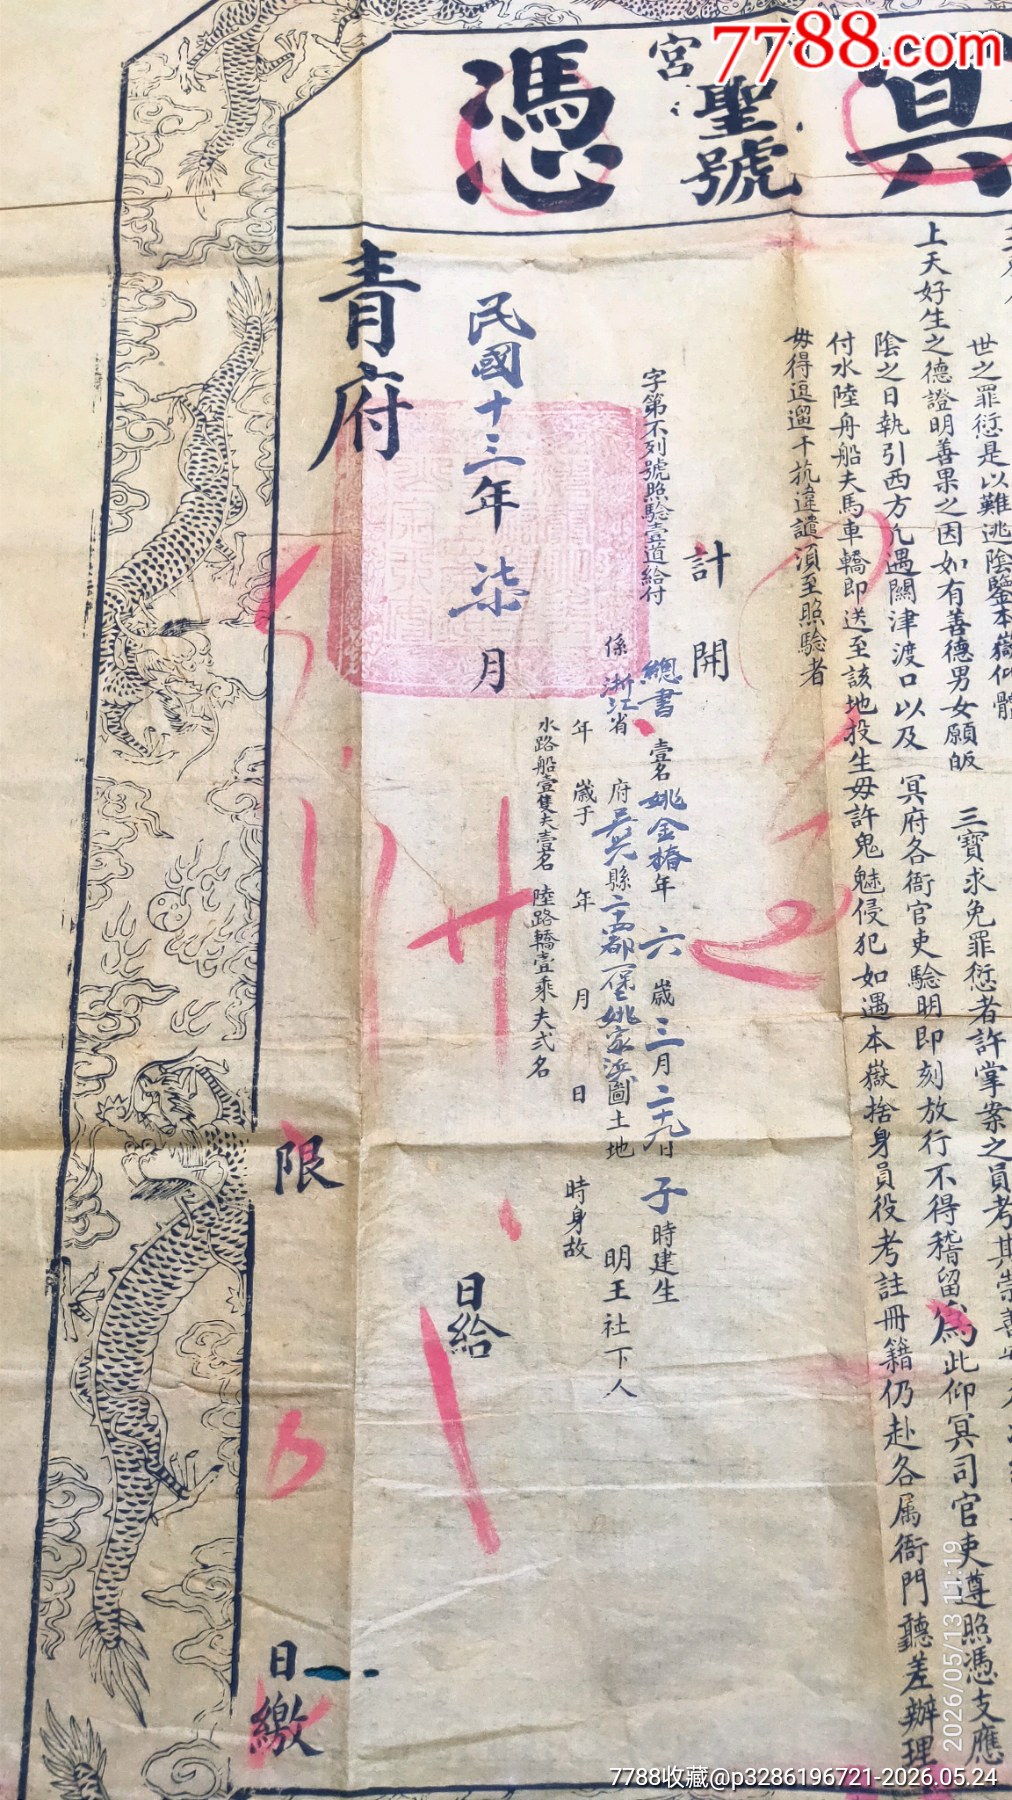 7788.com
聖號
宮
憑
世之罪愆是以難逃陰鑒本嶽仰體
上天好生之德證明善果之因如有善德男女願皈
三寶求免罪愆者許掌案之員考其崇善
陰之日執引西方凢遇關津渡口以及
冥府各衙官吏驗明即刻放行不得稽留為此仰冥司官吏遵照憑支應
付水陸舟船夫馬車轎即送至該地投生毋許鬼魅侵犯如遇本嶽捨身員役考註冊籍仍赴各属衙門聽差辦理
毋得逗遛干抗違譴須至照驗者
計開
字第不列號照驗壹道給付
總書 壹名姚金椿年 六 歲三月二十九日 子時建生
係浙江省 府吳興縣 都 姚家浜圖土地 明王社下人
年 歲于 年 月 日 時身故
水路船壹隻夫壹名 陸路轎壹乘夫弍名
民國十三年 柒月 日給
青府
限 日繳
2026/05/13 11:19
7788收藏@p3286196721-2026.05.24